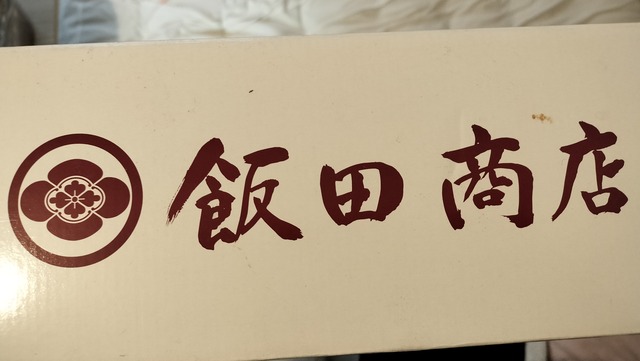 飯田商店